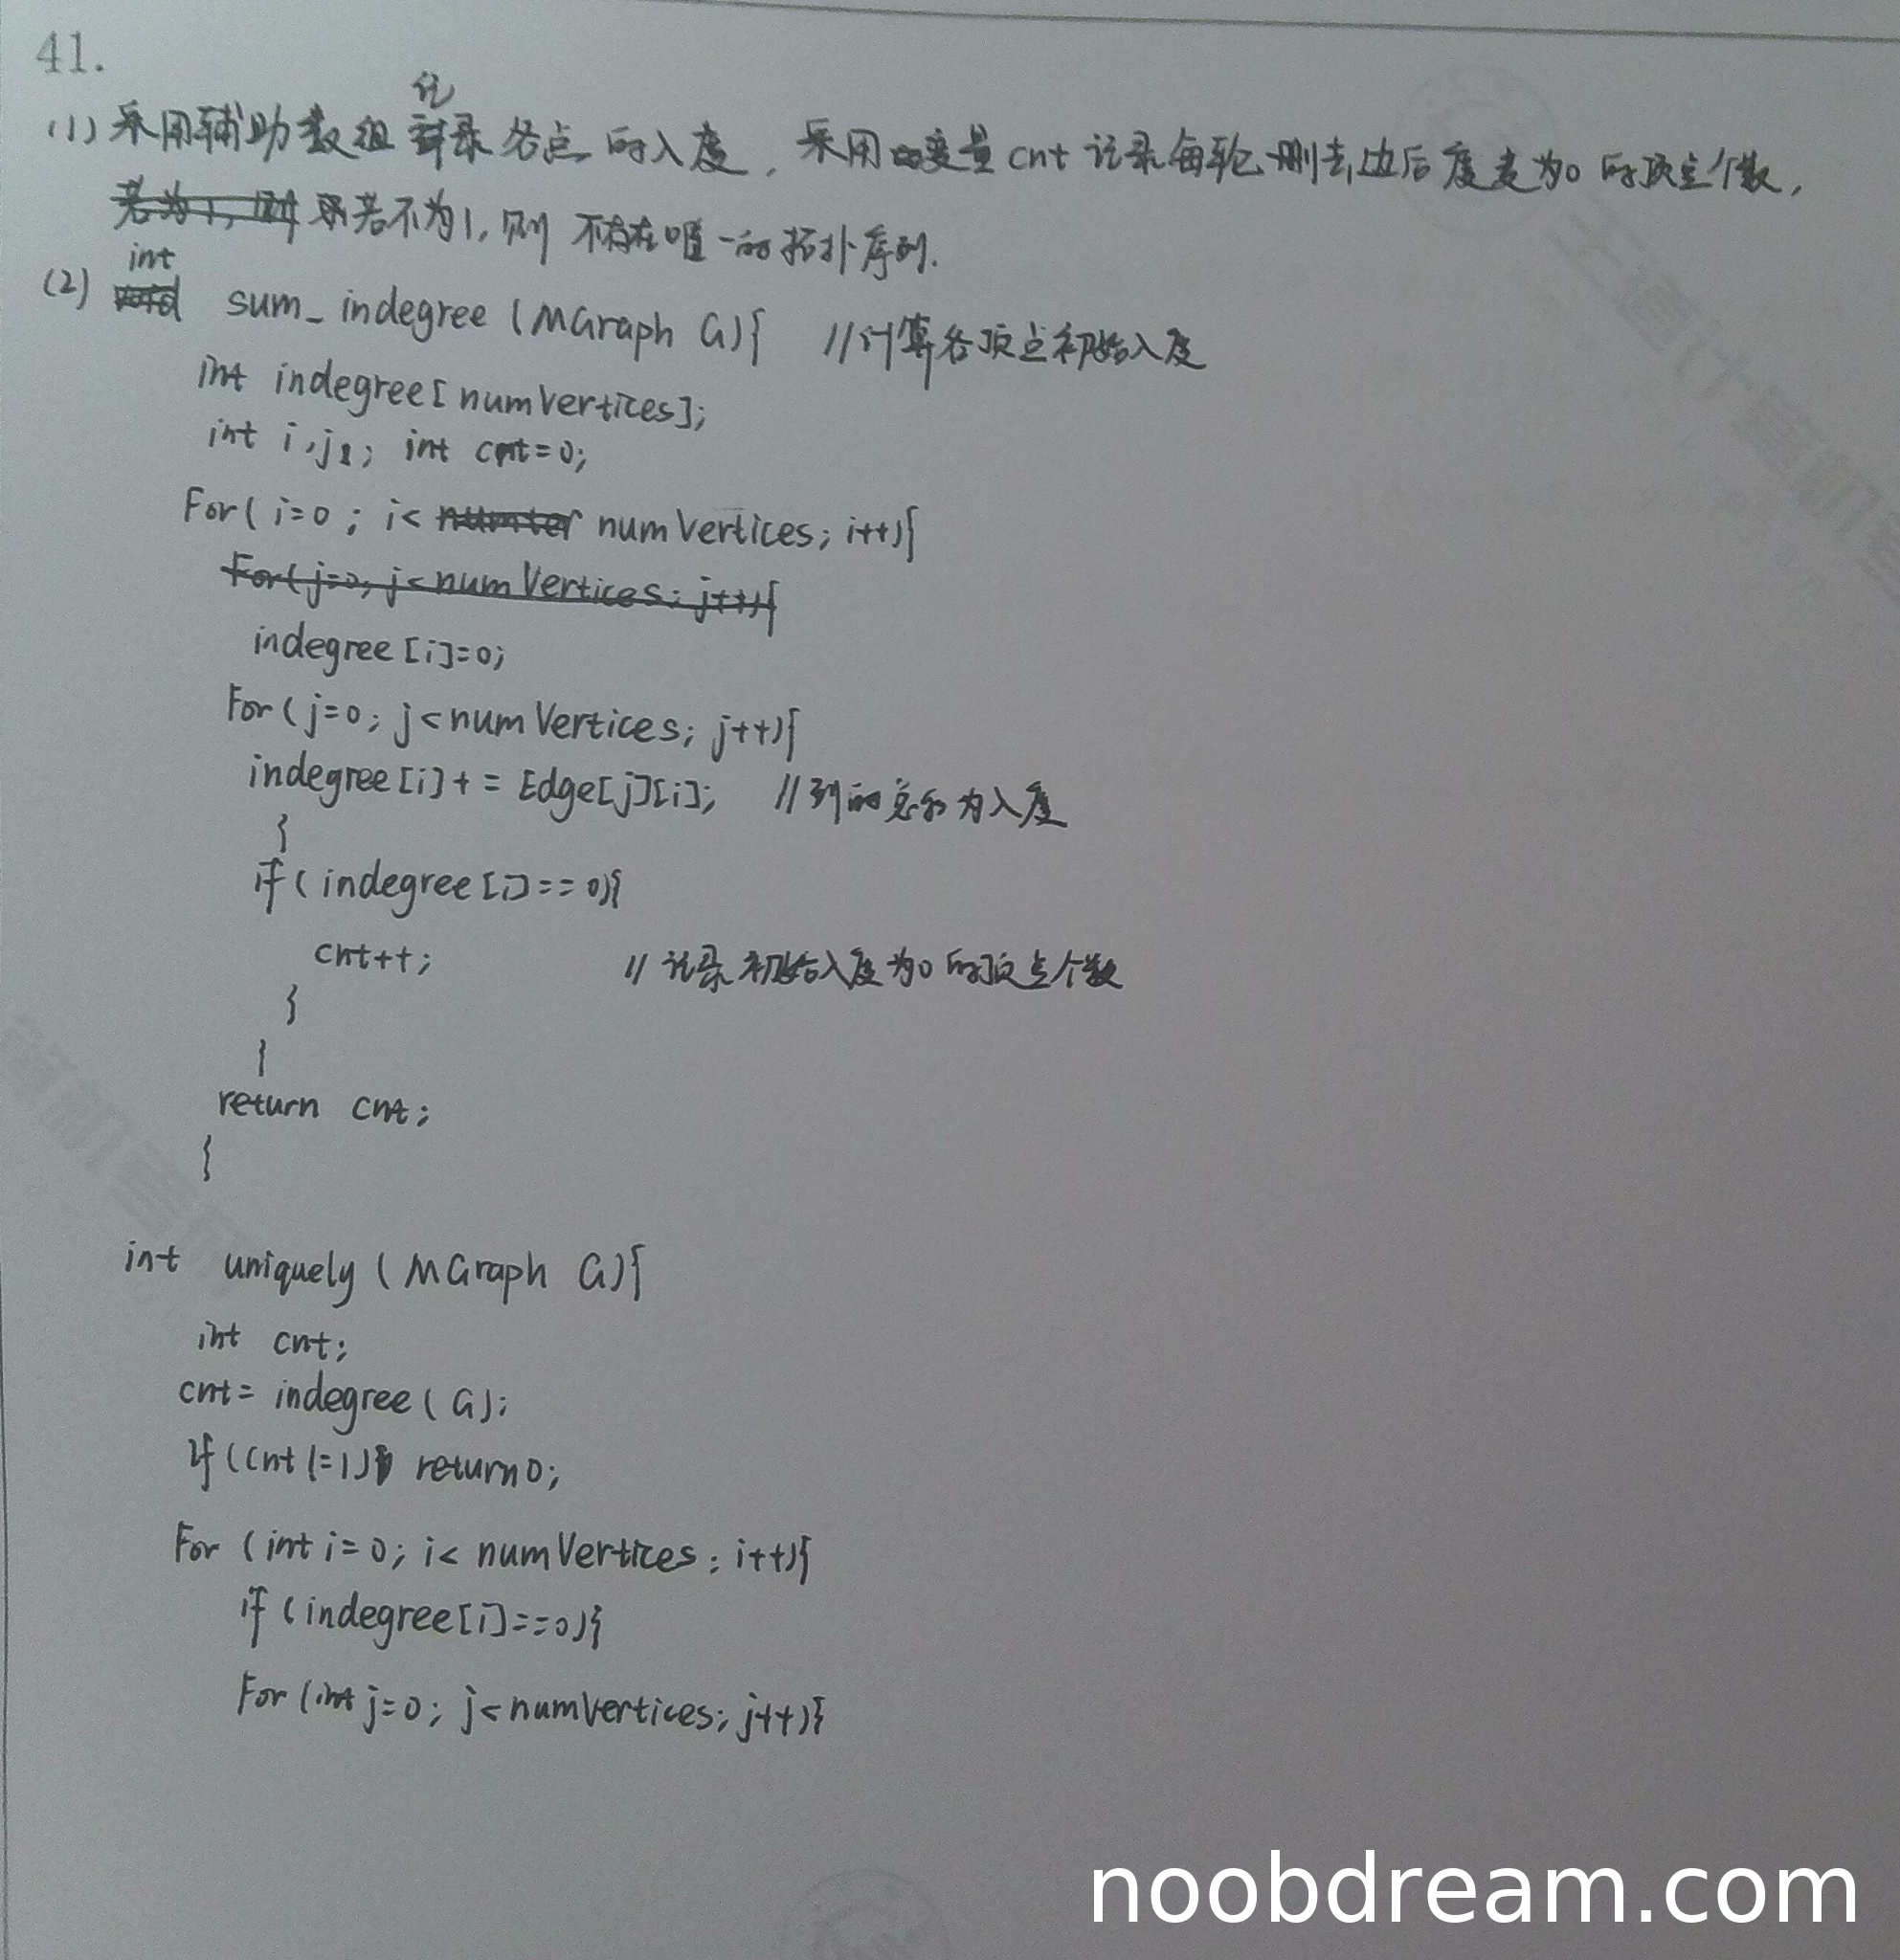 41.
(1) 采用辅助数组记录各点的入度,采用变量cnt记录每轮删去边后度变为0的顶点个数,
若不为1,则不存在唯一的拓扑序列.
(2) int sum_indegree (MGraph G){ //计算各顶点初始入度
int indegree[numVertices];
int i,j; int cnt=0;
For( i=0 ; i< numVertices; i++){
For( j=0; j<numVertices; j++){
indegree[i]=0;
For( j=0; j<numVertices; j++){
indegree[i]+= Edge[j][i]; //列的总和为入度
}
if( indegree[i]==0){
cnt++; //记录初始入度为0的顶点个数
}
}
return cnt;
}
int uniquely (MGraph G){
int cnt;
cnt= indegree(G);
If(cnt!=1) return 0;
For (int i=0; i< numVertices; i++){
if (indegree[i]==0){
For (int j=0; j<numVertices; j++){
王道计算机考
算机考研
noobdream.com